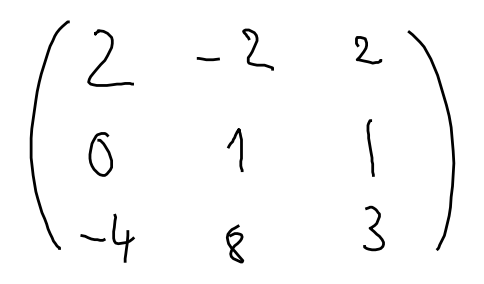 2 -2 2
0 1 1
-4 8 3